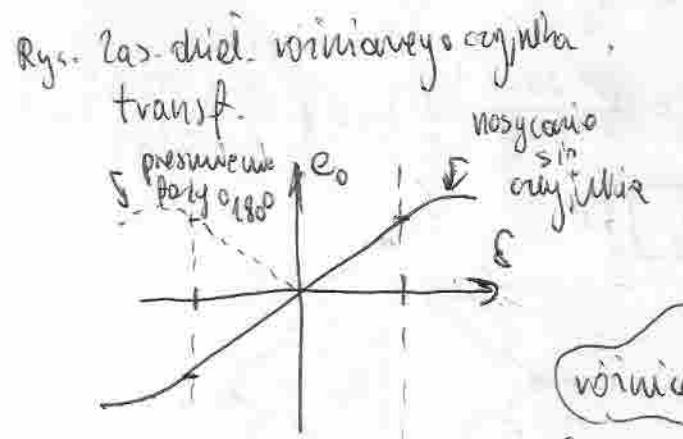 Rys. Zas. dział. różnicowego czujnika
transf.
przesunięcie
fazy o 180°
e₀
nasycanie
się
czujnika
δ
różnic